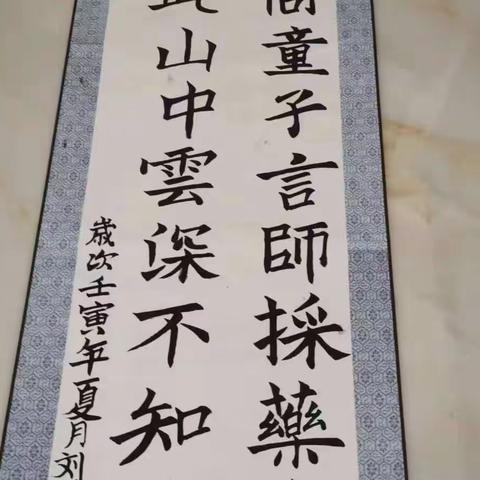 問童子言師採藥
此山中雲深不知
歲次壬寅年夏月刘